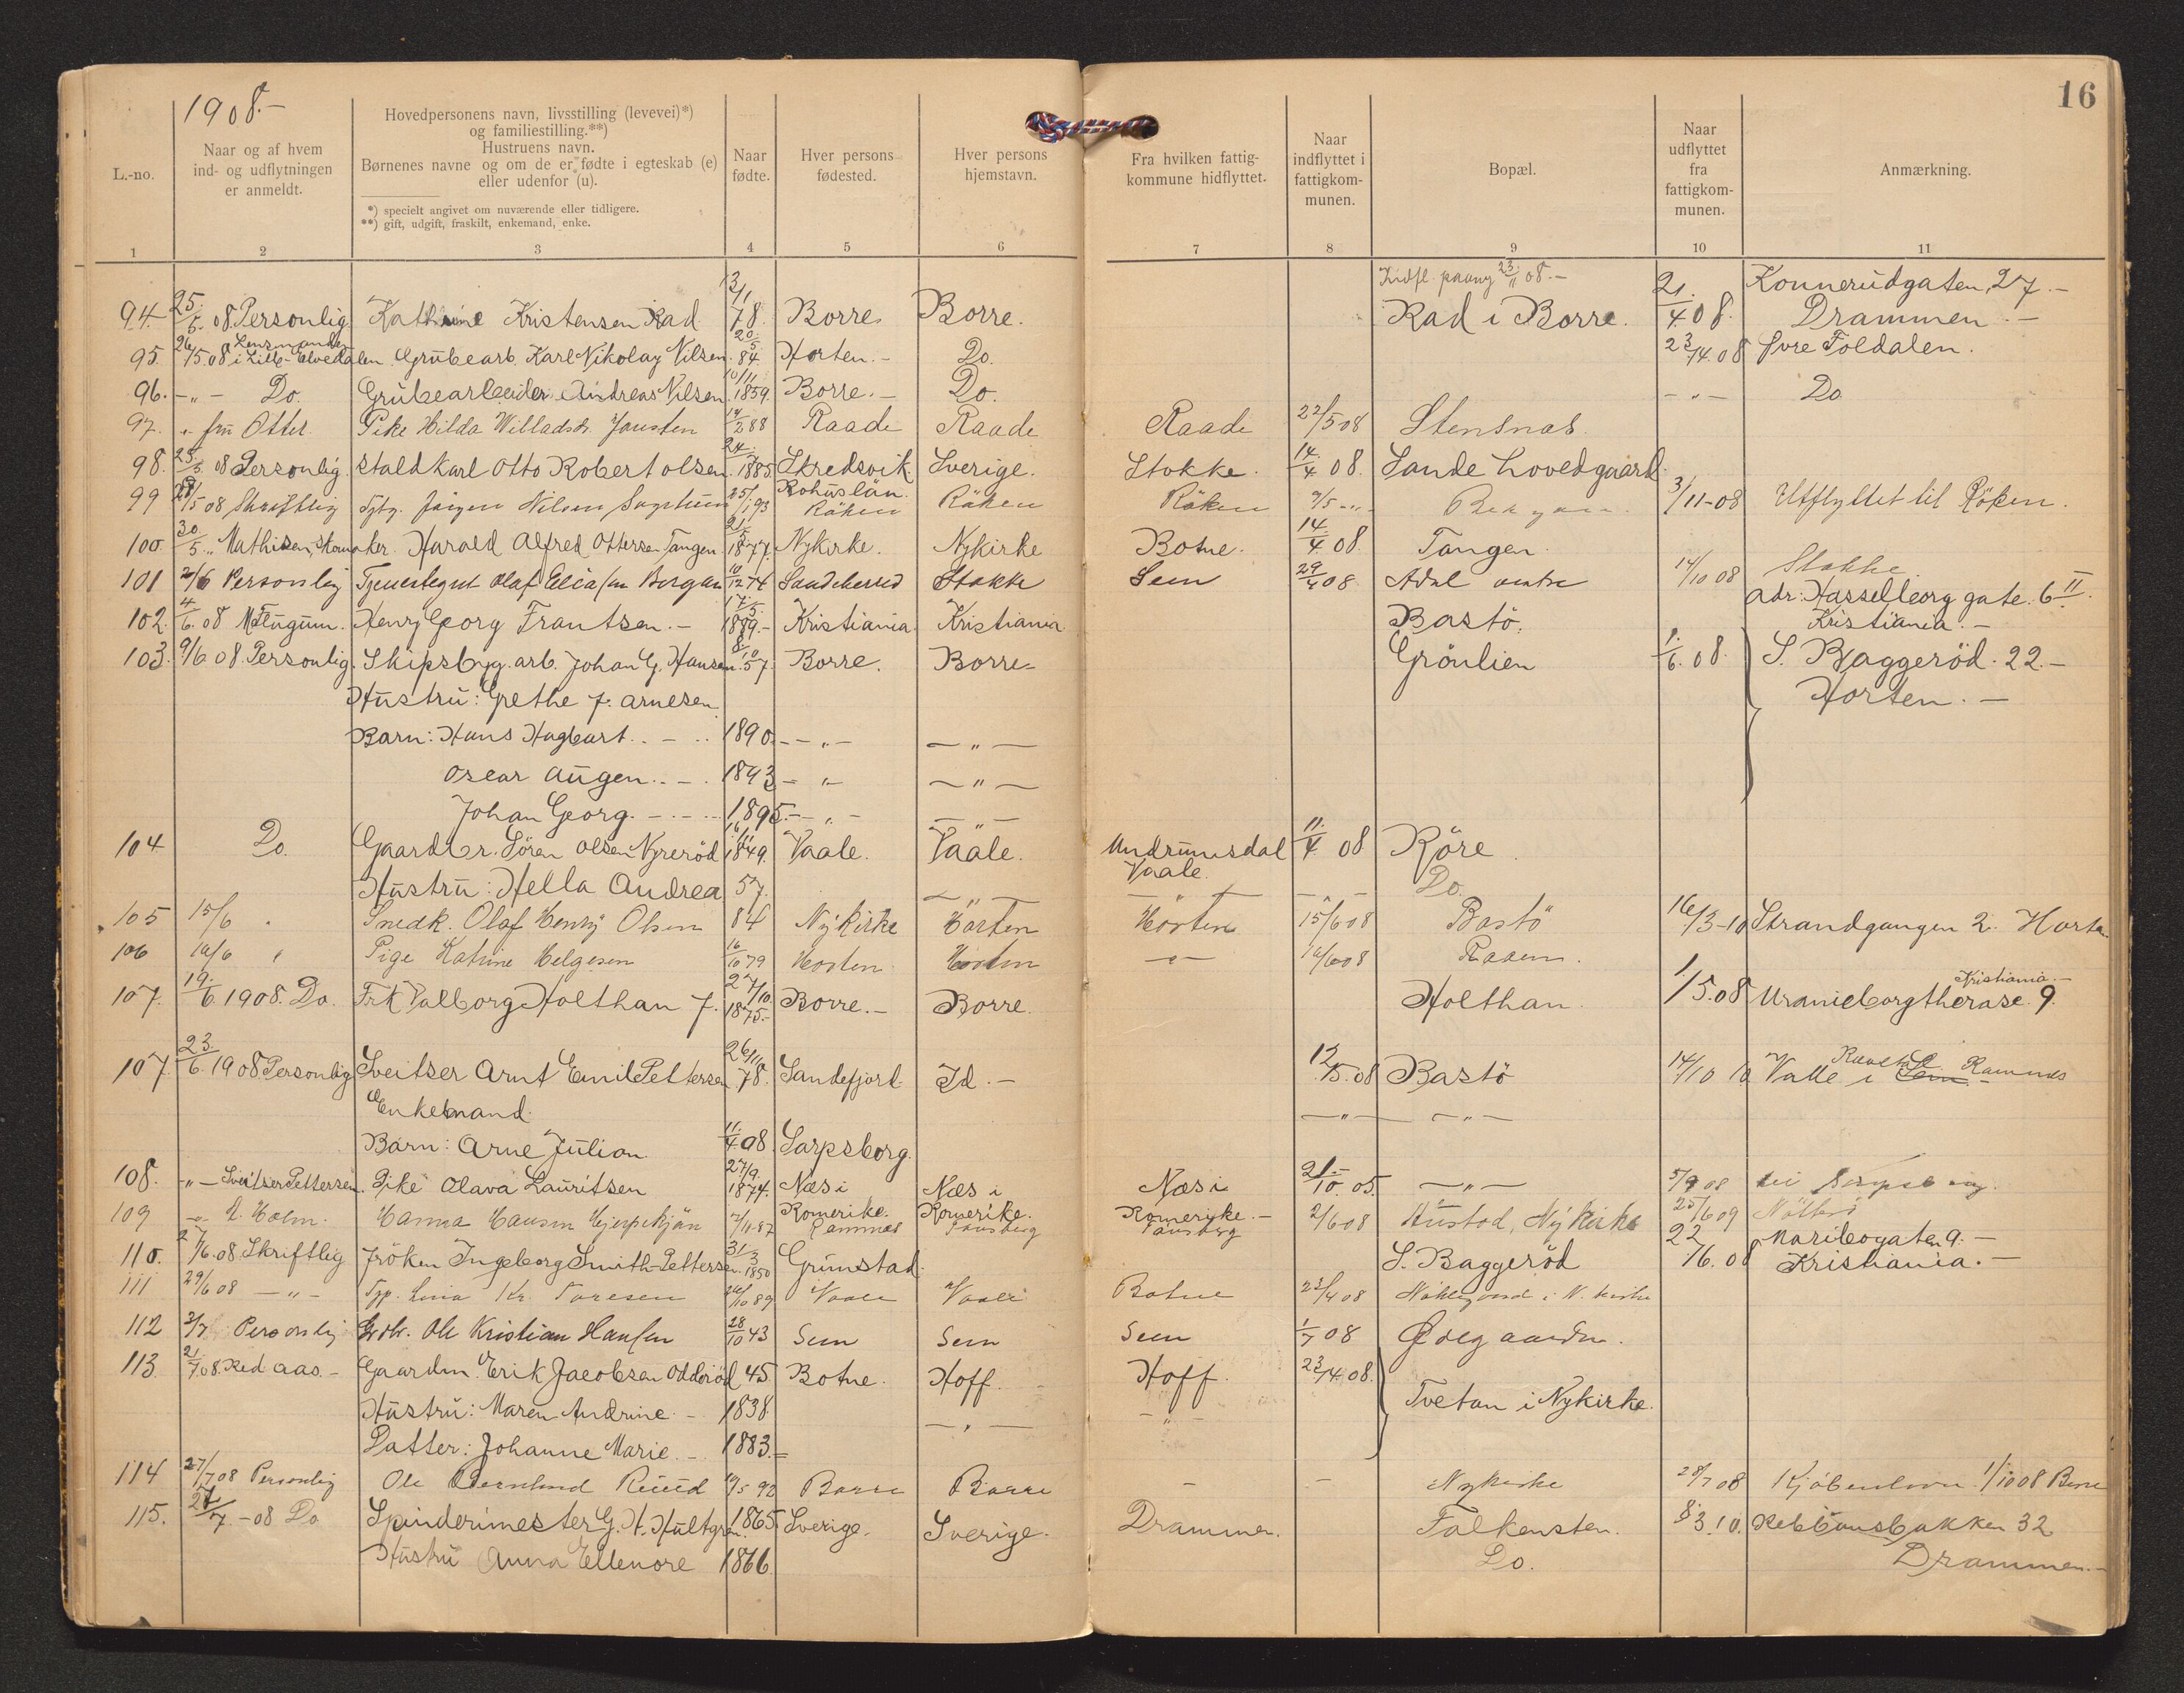 16
1908.-
L.-no.
Naar og af hvem ind- og udflytningen er anmeldt.
Hovedpersonens navn, livsstilling (levevei)*) og familiestilling.**)
Hustruens navn.
Børnenes navne og om de er fødte i egteskab (e) eller udenfor (u).
*) specielt angivet om nuværende eller tidligere.
**) gift, udgift, fraskilt, enkemand, enke.
Naar fødte.
Hver persons fødested.
Hver persons hjemstavn.
Fra hvilken fattigkommune hidflyttet.
Naar indflyttet i fattigkommunen.
Bopæl.
Naar udflyttet fra fattigkommunen.
Anmærkning.
1 2 3 4 5 6 7 8 9 10 11
Indfl. paany 23/11 08.-
94. 25/5. 08 Personlig Kathrine Kristensen Rad 13/11 78. Borre Borre. Rad i Borre. 21/4 08. Konnerudgaten 27.- Drammen.-
95. 26/5.08 Lensmanden i Lille-Elvedalen Grubearb. Karl Nikolay Nilsen 20/5 84 Horten.- Do. 23/4.08 Øvre Foldalen.
96. -"- Do. Grubearbeider Andreas Nilsen 10/11 1859. Borre.- Do. -"- Do
97. " fru Otter. Pike Hilda Willadsdr. Jonsten 14/2 88 Raade Raade Raade 27/5 08 Stensnes
98. 25/5 08 Personlig. Stald Karl Otto Robert Olsen 24/7 1885. Skredsvik Bohuslän. Sverige. Stokke. 14/4 08. Sande hovedgaard
99 28/5 08 Skriftlig Jørgen Nilsen 25/1 93 Röken Röken Röken 9/5 -"- Bergan 3/11-08 Utflyttet til Röken.
100. 30/5 " Mathisen, Skomaker. Harald Alfred Ottersen Tangen 21/5 1877. Nykirke. Nykirke Botne. 14/4 08. Tangen.
101 2/6 Personlig Tjenestegut Olaf Eliassen Borgan 10/12 74 Sandeherred Stokke Sem 29/4 08 Adal østre 14/10 08 Stokke
102. 4/6. 08 Henry Georg Frantsen.- 17/5. 1889.- Kristiania. Kristiania Bastö. Adr: Hasselberg gate. 6 II. Kristiania.-
103. 9/6. 08. Personlig. Skipsbyg. arb. Johan G. Hansen 8/10 57. Borre. Borre- Grönlien 1/6. 08. S. Baggeröd. 22.-
Hustru: Grethe f. Arnesen. Horten.-
Barn: Hans Hagbart..-.. 1890. -"- -"-
Oscar Augen..-. 1893 -"- -"-
Johan Georg.-.-.. 1895.- -"- -"-
104. Do. Gaardbr. Sören Olsen Nyreröd 16/11 1849. Vaale. Vaale. Undrumsdal Vaale. 11/4 08 Röre.
Hustru: Hella Andrea 57. -"- -"- -"- Do.
105 15/6 " Snedk. Olaf Henry Olsen 84 Nykirke Horten Horten 15/6 08 Bastö 16/3-10 Strandgangen 2. Horten
106 16/6 " Pige Katrine Helgesen 16/10 79 Horten Horten -"- 16/6 08
107. 19/6. 1908. Do. Frk Valborg Holthan f. 27/10. 1875.- Borre.- Borre. Holthan. 1/5.08 Uranieborgtherase. 9. Kristiania.-
107. 23/6. 1908 Personlig Sveitser Arnt Emil Pettersen 26/11 78. Sandefjord Id.- 12/5.08 Bastö 14/10 10 Valle i Ramnes
Enkemand. -"- -"-
Barn: Arne Julian. 11/4.08. Sarpsborg.
108. -"- Sveitser Pettersen. Pike Olava Lauritsen 27/9. 1874. Næs i Romerike. Næs i Romerike. Næs i Romerike.- 21/10. 05. -"- 5/9 08
109 -"- Holm. Hanna Hansen 2/11 87 Ramnes Tønsberg Tønsberg 2/6 08 Hustad, Nykirke 25/6 09 Nötterö
110. 27/6.08 Skriftlig Fröken Ingeborg Smith-Pettersen 31/3 1850 Grimstad. S. Baggeröd 22/6. 08 Maribogaten 9.- Kristiania.-
111 29/6 08 -"- Kr. Toresen 26/10 89 Vaale Vaale Botne 23/4 08
112 3/7 Personlig Grdbr. Ole Kristian Hansen 28/10 43 Sem Sem Sem 1/7 08 Ødegaarden.
113. 21/7.08. Red aas.- Gaardm. Erik Jacobsen Odderöd 45 Botne. Hoff. Hoff. 23/4.08. Tvetan i Nykirke.
Hustru: Maren Andrine.- 1838. -"- -"-
Datter: Johanne Marie.- 1883.-
114 27/7 08 Personlig Ole Bernhard Ruud 19/5 92 Borre Borre - - Nykirke 28/7 08 Kjøbenhavn. 1/10 08 Borre
115. 27/7.-08 Do Spinderimester G. H. Hultgren. 1865. Sverige. Sverige. Drammen. Falkensten. 8/3.10. 32
Hustru Anna Ellenore 1866. Do. Drammen.-